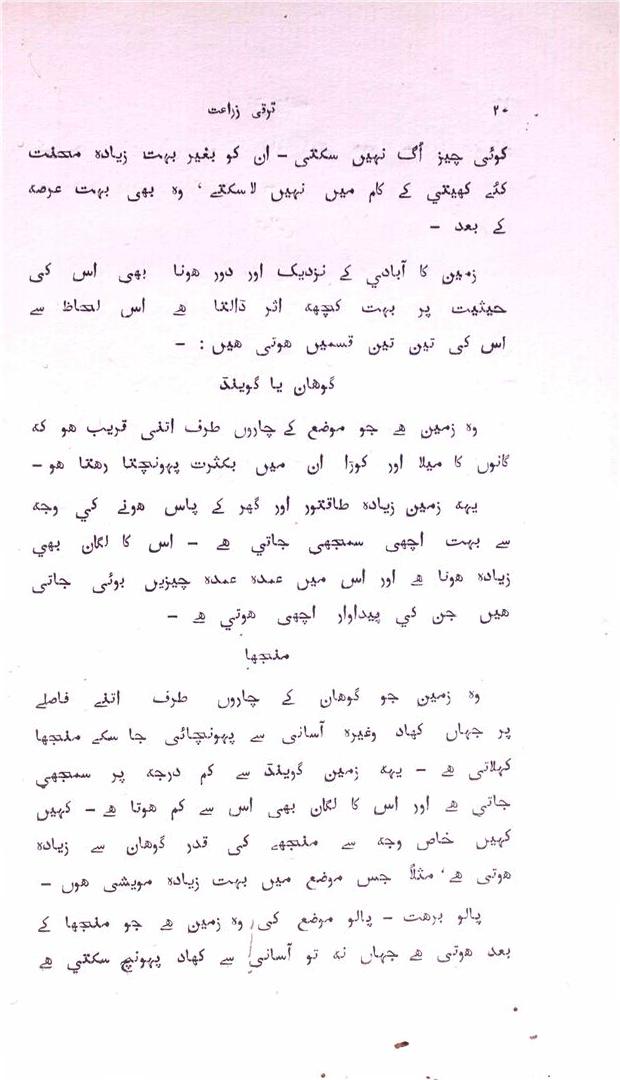 ۲۰ ترقی زراعت
کوئی چیز اُگ نہیں سکتی - ان کو بغیر بہت زیادہ محنت
کئے کھیتی کے کام میں نہیں لا سکتے، وہ بھی بہت عرصہ
کے بعد -
زمین کا آبادی کے نزدیک اور دور ہونا بھی اس کی
حیثیت پر بہت کچھہ اثر ڈالتا ہے اس لحاظ سے
اس کی تین تین قسمیں ہوتی ہیں : -
گوہان یا گوینڈ
وہ زمین ہے جو موضع کے چاروں طرف اتنی قریب ہو کہ
گانوں کا میلا اور کوڑا ان میں بکثرت پہونچتا رہتا ہو -
یہہ زمین زیادہ طاقتور اور گھر کے پاس ہونے کی وجہ
سے بہت اچھی سمجھی جاتی ہے - اس کا لگان بھی
زیادہ ہوتا ہے اور اس میں عمدہ عمدہ چیزیں بوئی جاتی
ہیں جن کی پیداوار اچھی ہوتی ہے -
منجھا
وہ زمین جو گوہان کے چاروں طرف اتنے فاصلے
پر جہاں کھاد وغیرہ آسانی سے پہونچائی جا سکے منجھا
کہلاتی ہے - یہہ زمین گوینڈ سے کم درجہ پر سمجھی
جاتی ہے اور اس کا لگان بھی اس سے کم ہوتا ہے - کہیں
کہیں خاص وجہ سے منجھے کی قدر گوہان سے زیادہ
ہوتی ہے، مثلاً جس موضع میں بہت زیادہ مویشی ہوں -
پالو برہت - پالو موضع کی وہ زمین ہے جو منجھا کے
بعد ہوتی ہے جہاں نہ تو آسانی سے کھاد پہونچ سکتی ہے